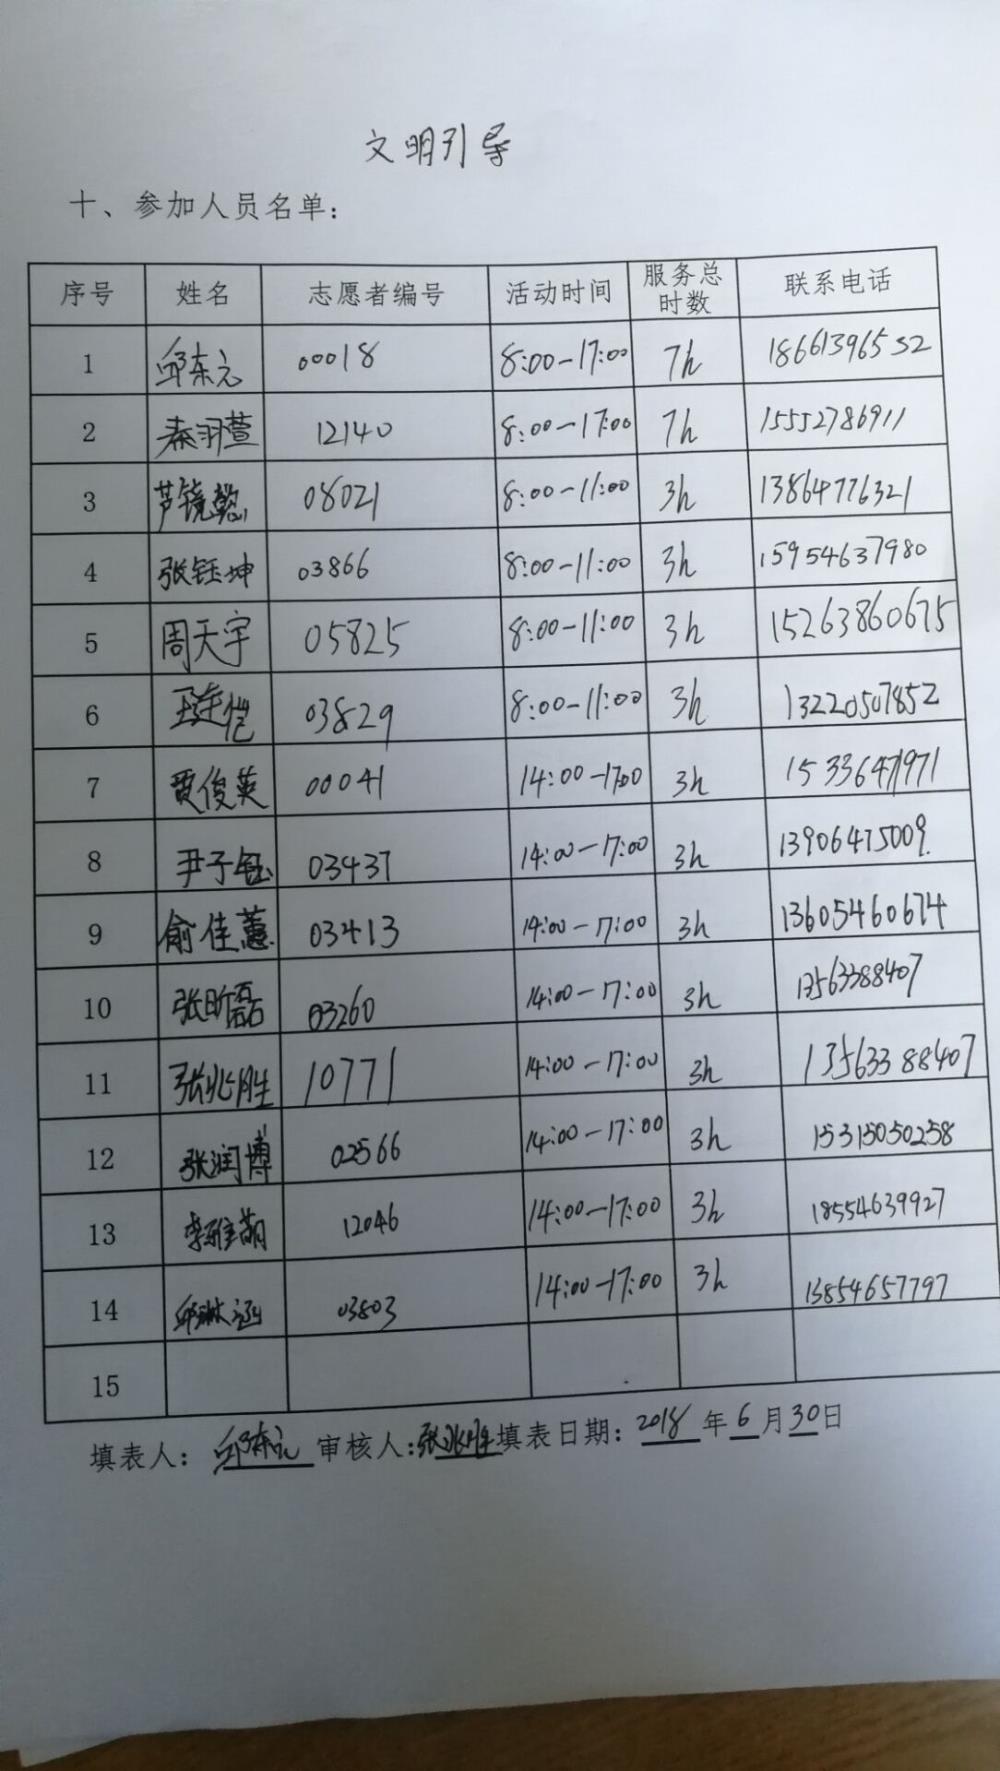 文明引导
十、参加人员名单：
序号 姓名 志愿者编号 活动时间 服务总时数 联系电话
1 邱东元 00018 8:00-17:00 7h 18661396552
2 秦羽萱 12140 8:00-17:00 7h 15552786911
3 芦镜懿 08021 8:00-11:00 3h 13864776321
4 张钰坤 03866 8:00-11:00 3h 15954637980
5 周天宇 05825 8:00-11:00 3h 15263860675
6 03829 8:00-11:00 3h 13220507852
7 贾俊英 00041 14:00-17:00 3h 1533647971
8 尹子钰 03437 14:00-17:00 3h 13906475009
9 俞佳蕙 03413 14:00-17:00 3h 13605460674
10 张昕磊 03260 14:00-17:00 3h 13563388407
11 张兆胜 10771 14:00-17:00 3h 13563388407
12 张润博 02566 14:00-17:00 3h 15315050258
13 李雅萌 12046 14:00-17:00 3h 18554639927
14 邱琳涵 03803 14:00-17:00 3h 13854657797
15
填表人：邱东元 审核人:张兆胜 填表日期：2018年6月30日